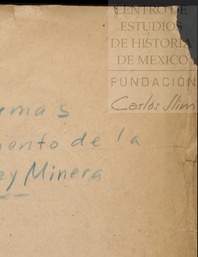 CENTRO DE
ESTUDIOS
DE HISTORIA
DE MEXICO
FUNDACIÓN
Carlos Slim
emas
mento de la
ey Minera